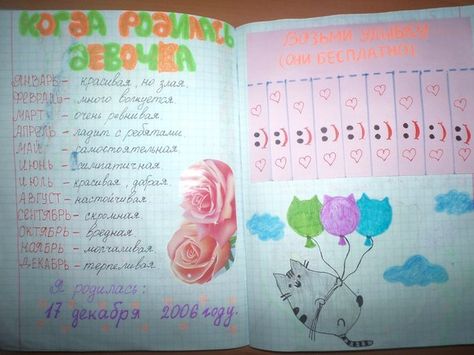 КОГДА РОДИЛАСЬ
ДЕВОЧКА
ЯНВАРЬ - красивая, но злая.
ФЕВРАЛЬ - много волнуется.
МАРТ - очень ревнивая.
АПРЕЛЬ - ладит с ребятами.
МАЙ - самостоятельная.
ИЮНЬ - симпатичная.
ИЮЛЬ - красивая, добрая.
АВГУСТ - настойчивая.
СЕНТЯБРЬ - скромная.
ОКТЯБРЬ - вредная.
НОЯБРЬ - молчаливая.
ДЕКАБРЬ - терпеливая.
Я родилась:
17 декабря 2006 году.
ВОЗЬМИ УЛЫБКУ
(ОНИ БЕСПЛАТНО)